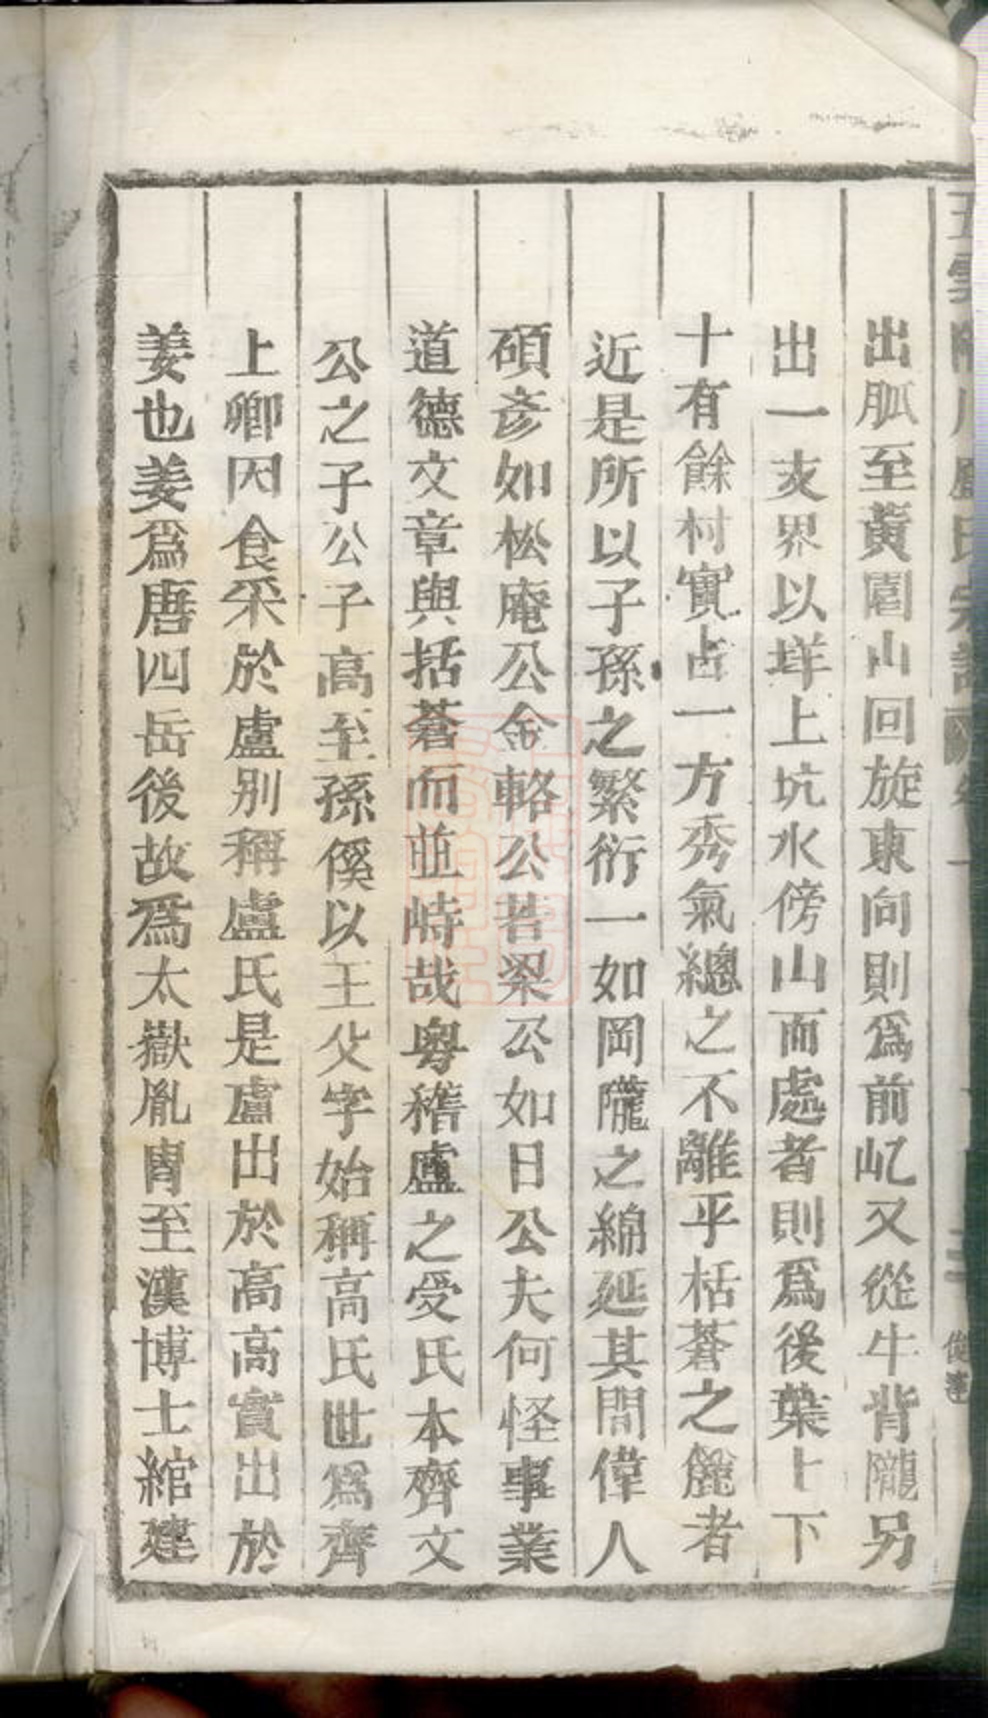 盧氏宗譜 卷一
出脈至黃園山回旋東向則爲前屹又從牛背隴另
出一支界以垟上坑水傍山而處者則爲後葉上下
十有餘村實占一方秀氣總之不離乎栝蒼之麓者
近是所以子孫之繁衍一如岡隴之綿延其間偉人
碩彥如松庵公金輅公若梁公如日公夫何怪事業
道德文章與括蒼而並峙哉粵稽盧之受氏本齊文
公之子公子高至孫傒以王父字始稱高氏世爲齊
上卿因食采於盧別稱盧氏是盧出於高高實出於
姜也姜爲唐四岳後故爲太嶽胤胄至漢博士綰建